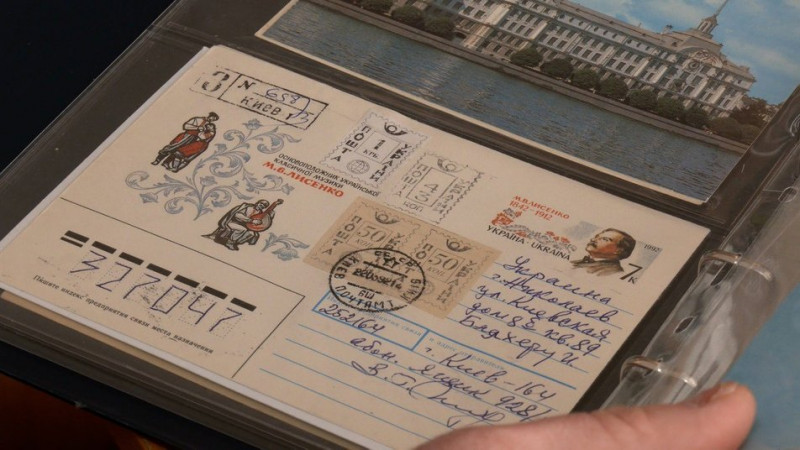 З
№ 658
КИЕВ Г/5
ОСНОВОПОЛОЖНИК УКРАЇНСЬКОЇ
КЛАСИЧНОЇ МУЗИКИ
М.В.ЛИСЕНКО
ПОШТА
1
КРБ
УКРАЇНИ
ПОШТА
45
КОП
УКРАЇНИ
ПОШТА
50
УКРАЇНИ
ПОШТА
50
УКРАЇНИ
ПОЧТАМТ
М.В.ЛИСЕНКО
1842-1912
УКРАЇНА · UKRAINA
1992
7к
Украина
г. Николаев
ул. Киевская
дом 8 кв. 89
Бляхеру И.
327047
Пишите индекс предприятия связи места назначения
252164
г. Киев-164
абон. ящик 928/